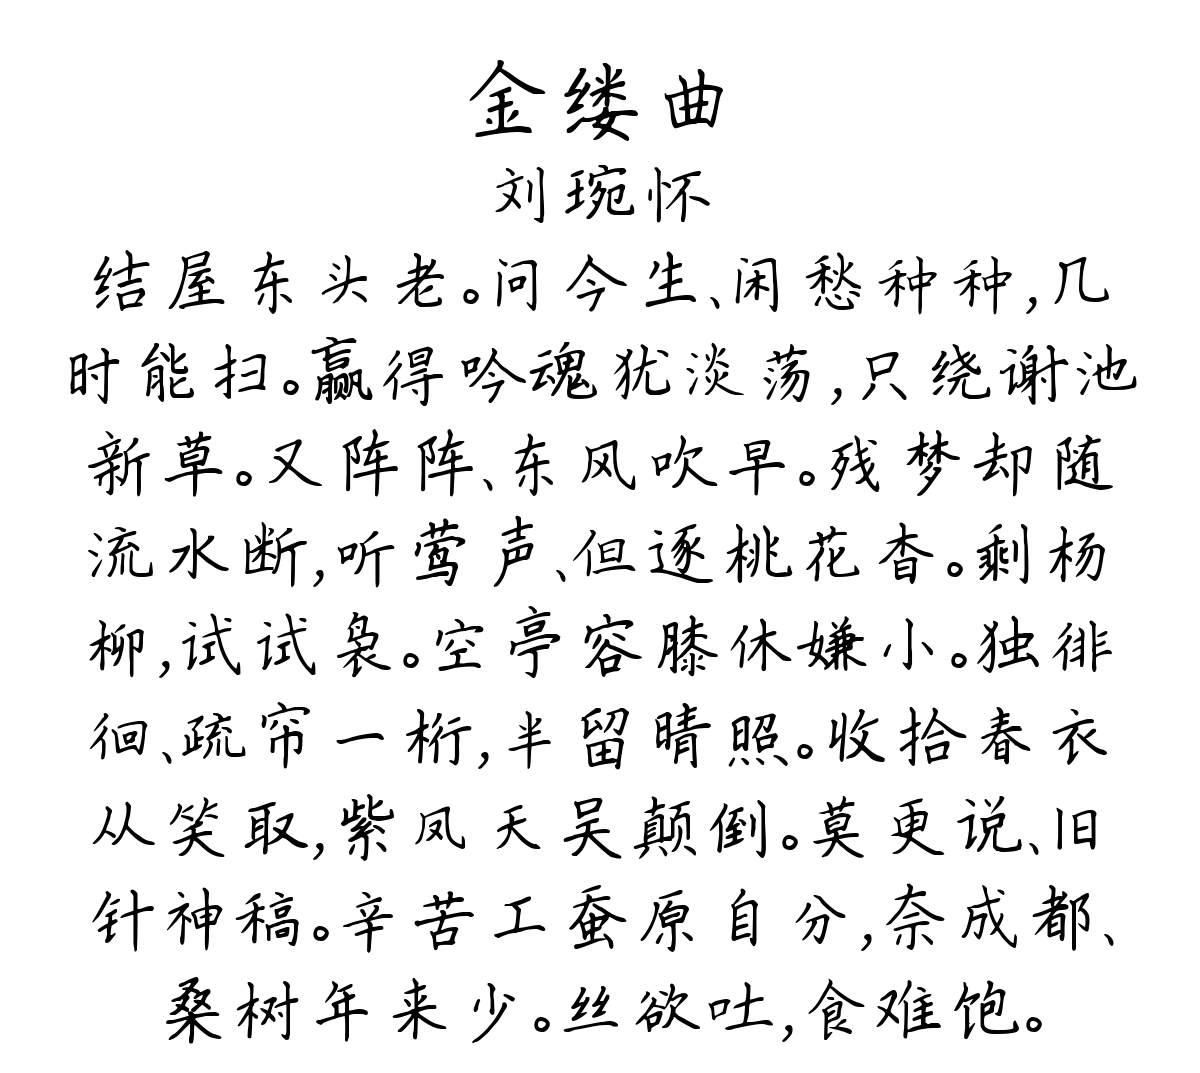 金缕曲
刘琬怀
结屋东头老。问今生、闲愁种种,几
时能扫。赢得吟魂犹淡荡,只绕谢池
新草。又阵阵、东风吹早。残梦却随
流水断,听莺声、但逐桃花杳。剩杨
柳,试试袅。空亭容膝休嫌小。独徘
徊、疏帘一桁,半留晴照。收拾春衣
从笑取,紫凤天吴颠倒。莫更说、旧
针神稿。辛苦工蚕原自分,奈成都、
桑树年来少。丝欲吐,食难饱。